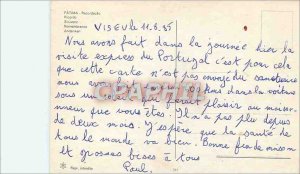 FATIMA - Recordação
Picardo
Souvenir
Remembrance
Andenken
VISEU le 11.6.85
Nous avons fait dans la journée hier la
visite express du Portugal c'est pour cela
que cette carte n'est pas envoyé du sanctuaire
nous avons dans la voiture
sous un qui ferait plaisir au maximum
que vous êtes. Il n'a pas plu depuis
de deux mois. J'espère que la santé de
tous le monde va bien. Bonne fin de mois
et grosses bises à tous
Paul.
Repr. interdite